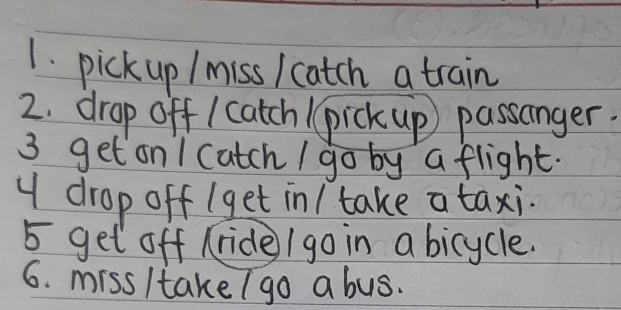 1. pick up / miss / catch a train
2. drop off / catch / pick up passanger.
3 get on / catch / go by a flight.
4 drop off / get in / take a taxi.
5 get off / ride / go in a bicycle.
6. miss / take / go a bus.